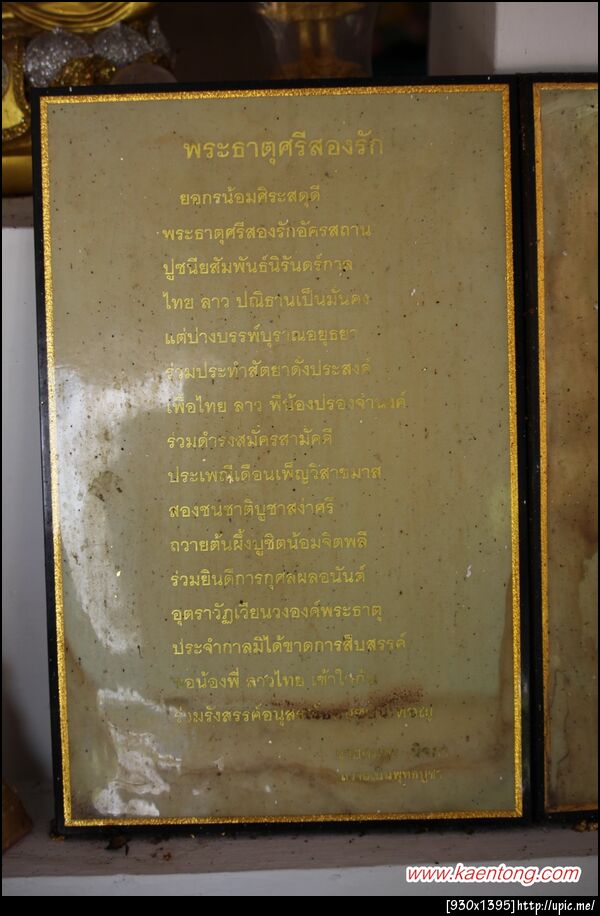 พระธาตุศรีสองรัก
ยอกรน้อมศิระสดุดี
พระธาตุศรีสองรักอัครสถาน
ปูชนียสัมพันธ์นิรันดร์กาล
ไทย ลาว ปณิธานเป็นมั่นคง
แต่ปางบรรพ์บุราณอยุธยา
ร่วมประทำสัตยาดั่งประสงค์
เพื่อไทย ลาว พี่น้องปรองจำนงค์
ร่วมดำรงสมัครสามัคคี
ประเพณีเดือนเพ็ญวิสาขมาส
สองชนชาติบูชาสง่าศรี
ถวายต้นผึ้งบูชิตน้อมจิตพลี
ร่วมยินดีการกุศลผลอนันต์
อุตราวัฏเวียนวงองค์พระธาตุ
ประจำกาลมิได้ขาดการสืบสรรค์
ขอน้องพี่ ลาวไทย เข้าใจกัน
ร่วมรังสรรค์
ถวายเป็นพุทธบูชา
www.kaentong.com
[930x1395]http://upic.me/